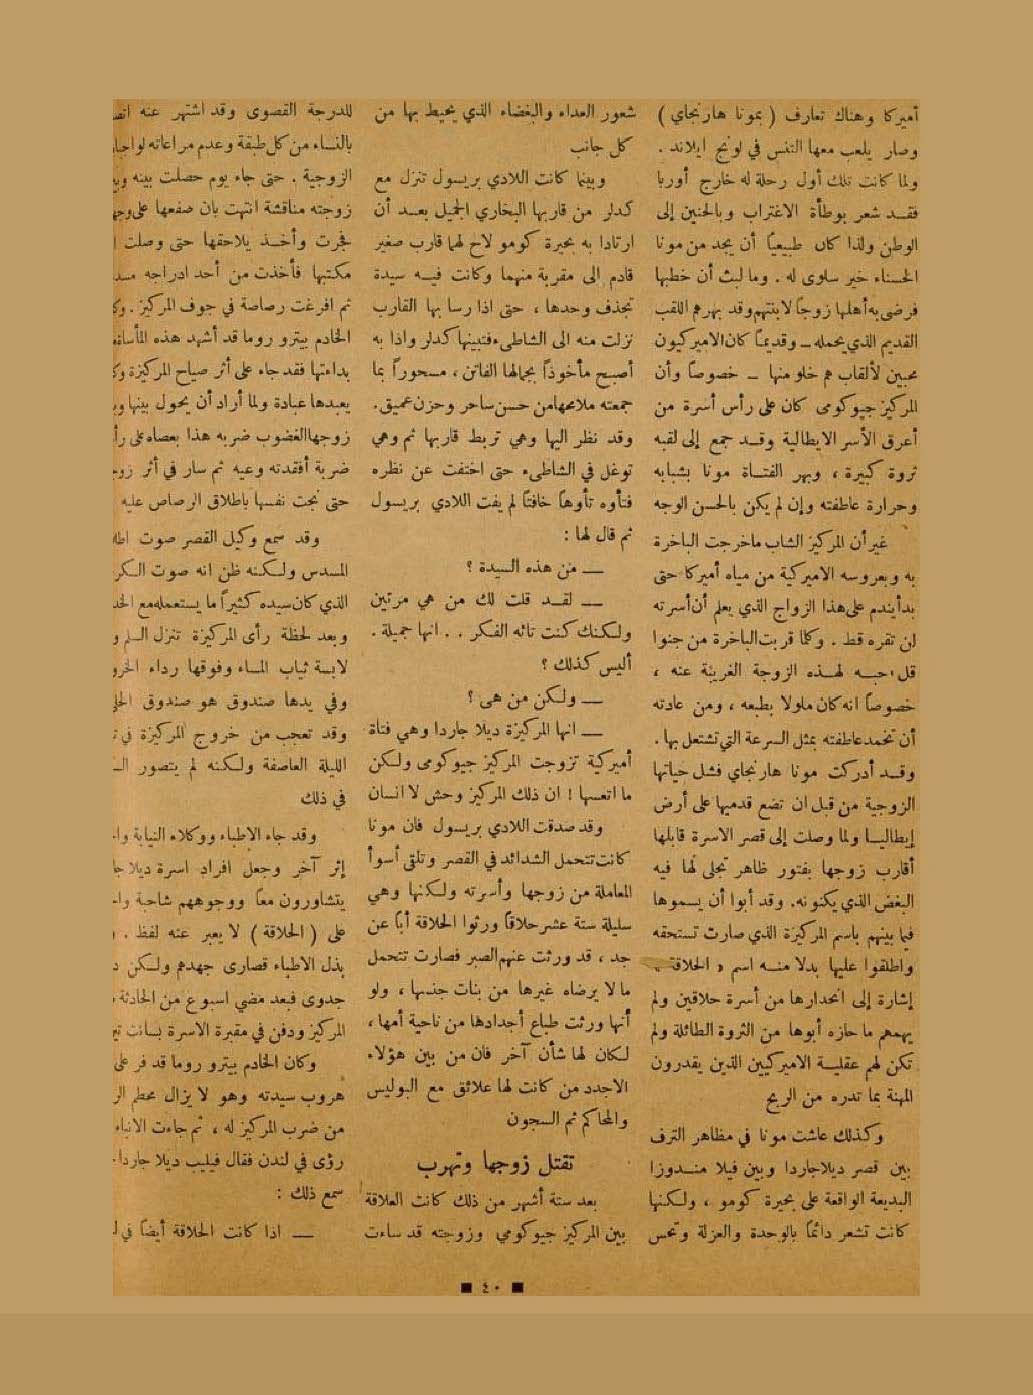 أميركا وهناك تعارف ( بمونا هارنجاي )
وصار يلعب معها التنس في لونج ايلاند .
ولما كانت تلك أول رحلة له خارج أوربا
فقد شعر بوطأة الاغتراب وبالحنين إلى
الوطن ولذا كان طبيعياً أن يجد من مونا
الحسناء خير سلوى له . وما لبث أن خطبها
فرضى به أهلها زوجاً لابنتهم وقد بهرهم اللقب
القديم الذي يحمله ــ وقديماً كان الاميركيون
محبين لألقاب هم خلو منها ــ خصوصاً وأن
المركيز جيوكومى كان على رأس أسرة من
أعرق الأسر الايطالية وقد جمع إلى لقبه
ثروة كبيرة ، وبهر الفتاة مونا بشبابه
وحرارة عاطفته وإن لم يكن بالحسن الوجه
غير أن المركيز الشاب ما خرجت الباخرة
به وبعروسه الاميركية من مياه أميركا حتى
بدأ يندم على هذا الزواج الذي يعلم أن أسرته
لن تقره قط . وكلما قربت الباخرة من جنوا
قل حبه لهذه الزوجة الغريبة عنه ،
خصوصاً انه كان ملولا بطبعه ، ومن عادته
أن تخمد عاطفته بمثل السرعة التي تشتعل بها .
وقد أدركت مونا هارنجاي فشل حياتها
الزوجية من قبل ان تضع قدميها على أرض
إيطاليا ولما وصلت إلى قصر الاسرة قابلها
أقارب زوجها بفتور ظاهر تجلى لها فيه
البغض الذي يكنونه . وقد أبوا أن يسموها
فيما بينهم باسم المركيزة الذي صارت تستحقه
واطلقوا عليها بدلا منه اسم « الحلاقة »
إشارة إلى انحدارها من أسرة حلاقين ولم
يهمهم ما حازه أبوها من الثروة الطائلة ولم
تكن لهم عقلية الاميركيين الذين يقدرون
المهنة بما تدره من الربح
وكذلك عاشت مونا في مظاهر الترف
بين قصر ديلا جاردا وبين فيلا مندوزا
البديعة الواقعة على بحيرة كومو ، ولكنها
كانت تشعر دائماً بالوحدة والعزلة وتحس
شعور العداء والبغضاء الذي يحيط بها من
كل جانب
وبينما كانت اللادي بريسول تنزل مع
كدلر من قاربها البخاري الجميل بعد أن
ارتادا به بحيرة كومو لاح لهما قارب صغير
قادم إلى مقربة منهما وكانت فيه سيدة
تجذف وحدها ، حتى اذا رسا بها القارب
نزلت منه الى الشاطىء فتبينها كدلر واذا به
أصبح مأخوذاً بجمالها الفاتن ، مسحوراً بما
جمعته ملامحها من حسن ساحر وحزن عميق .
وقد نظر اليها وهي تربط قاربها ثم وهي
توغل في الشاطىء حتى اختفت عن نظره
فتأوه تأوهاً خافتاً لم يفت اللادي بريسول
ثم قال لها :
ــ من هذه السيدة ؟
ــ لقد قلت لك من هي مرتين
ولكنك كنت تائه الفكر . . انها جميلة .
أليس كذلك ؟
ــ ولكن من هى ؟
ــ انها المركيزة ديلا جاردا وهي فتاة
أميركية تزوجت المركيز جيوكومى ولكن
ما اتعسها ! ان ذلك المركيز وحش لا انسان
وقد صدقت اللادي بريسول فان مونا
كانت تتحمل الشدائد في القصر وتلقى أسوأ
المعاملة من زوجها وأسرته ولكنها وهي
سليلة ستة عشر حلاقاً ورثوا الحلاقة أباً عن
جد ، قد ورثت عنهم الصبر فصارت تتحمل
ما لا يرضاه غيرها من بنات جنسها ، ولو
أنها ورثت طباع أجدادها من ناحية أمها ،
لكان لها شأن آخر فان من بين هؤلاء
الاجدد من كانت لها علائق مع البوليس
والمحاكم ثم السجون
تقتل زوجها وتهرب
بعد ستة أشهر من ذلك كانت العلاقة
بين المركيز جيوكومي وزوجته قد ساءت
للدرجة القصوى وقد اشتهر عنه
بالنساء من كل طبقة وعدم مراعاته
الزوجية . حتى جاء يوم حصلت بينه
زوجته مناقشة انتهت بان صفعها على
فجرت وأخذ يلاحقها حتى وصلت
مكتبها فأخذت من أحد ادراجه
ثم افرغت رصاصة في جوف المركيز .
الخادم بيترو روما قد أشهد هذه
بداءتها فقد جاء على أثر صياح المركيزة
يعبدها عبادة ولما أراد أن يحول بينها
زوجها الغضوب ضربه هذا بعصاه على
ضربة أفقدته وعيه ثم سار في أثر
حتى نجت نفسها باطلاق الرصاص عليه
وقد سمع وكيل القصر صوت
المسدس ولكنه ظن انه صوت
الذي كان سيده كثيراً ما يستعمله مع
وبعد لحظة رأى المركيزة تنزل السلم
لابسة ثياب المساء وفوقها رداء
وفي يدها صندوق هو صندوق
وقد تعجب من خروج المركيزة في
الليلة العاصفة ولكنه لم يتصور
في ذلك
وقد جاء الاطباء ووكلاء النيابة
إثر آخر وجعل افراد اسرة ديلا
يتشاورون معاً ووجوههم شاحبة
على ( الحلاقة ) لا يعبر عنه لفظ .
بذل الاطباء قصارى جهدهم ولكن
جدوى فبعد مضي اسبوع من الحادثة
المركيز ودفن في مقبرة الاسرة
وكان الخادم بيترو روما قد فر على
هروب سيدته وهو لا يزال محطم
من ضرب المركيز له ، ثم جاءت
رؤى في لندن فقال فيليب ديلا جاردا
سمع ذلك :
ــ اذا كانت الحلاقة أيضاً في
■ ٤٠ ■